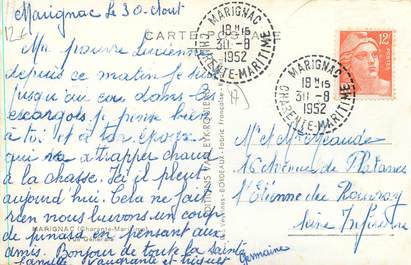 Marignac le 30 Aout
CARTE POSTALE
MARIGNAC
18H15
30-8
1952
CHARENTE-MARITIME
MARIGNAC
18H15
30-8
1952
CHARENTE-MARITIME
12F
POSTES
Ma pauvre Lucienne
depuis ce matin je suis
jusqu'au cou dans les
escargots je pense bien
à toi et à ton époux
qui va attraper chaud
à la chasse. Ici il pleut
aujourd'hui. Cela ne fait
rien nous buvons un coup
de pinard en pensant aux
amis. Bonjour de toute la sainte
famille
Germaine
MARIGNAC (Charente-Mme)
Vue Générale
BORDEAUX
Mr et Me
16 Avenue de Platanes
St Etienne du Rouvray
Seine Inférieure